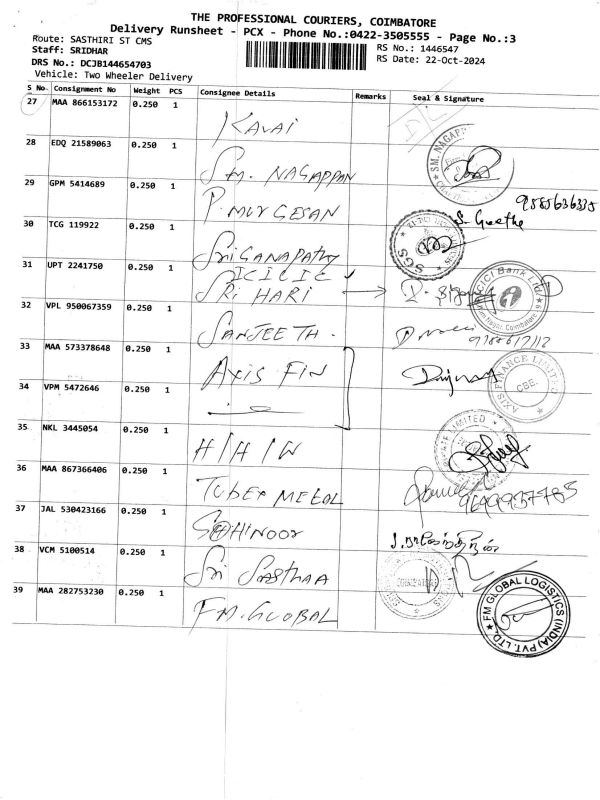 THE PROFESSIONAL COURIERS, COIMBATORE
Delivery Runsheet - PCX - Phone No.:0422-3505555 - Page No.:3
Route: SASTHIRI ST CMS
RS No.: 1446547
Staff: SRIDHAR
RS Date: 22-Oct-2024
DRS No.: DCJB144654703
Vehicle: Two Wheeler Delivery
S No Consignment No Weight PCS Consignee Details Remarks Seal & Signature
27 MAA 866153172 0.250 1 KALAI
28 EDQ 21589063 0.250 1 SM. NAGAPPAN
29 GPM 5414689 0.250 1 P. MURGESAN S. Geetha 9585636335
30 TCG 119922 0.250 1 Sri GANAPATHY SGS
31 UPT 2241750 0.250 1 ICICIC
Sri HARI ICICI Bank Ltd
32 VPL 950067359 0.250 1 SANJEETH.
33 MAA 573378648 0.250 1 AXIS FIN AXIS FINANCE LIMITED CBE.
34 VPM 5472646 0.250 1
35 NKL 3445054 0.250 1 HIHIW
36 MAA 867366406 0.250 1 TUBEX METAL
37 JAL 530423166 0.250 1 SAHINOOR
38 VCM 5100514 0.250 1 Sri SASTHAA
39 MAA 282753230 0.250 1 FM. GLOBAL FM GLOBAL LOGISTICS (INDIA) PVT. LTD.